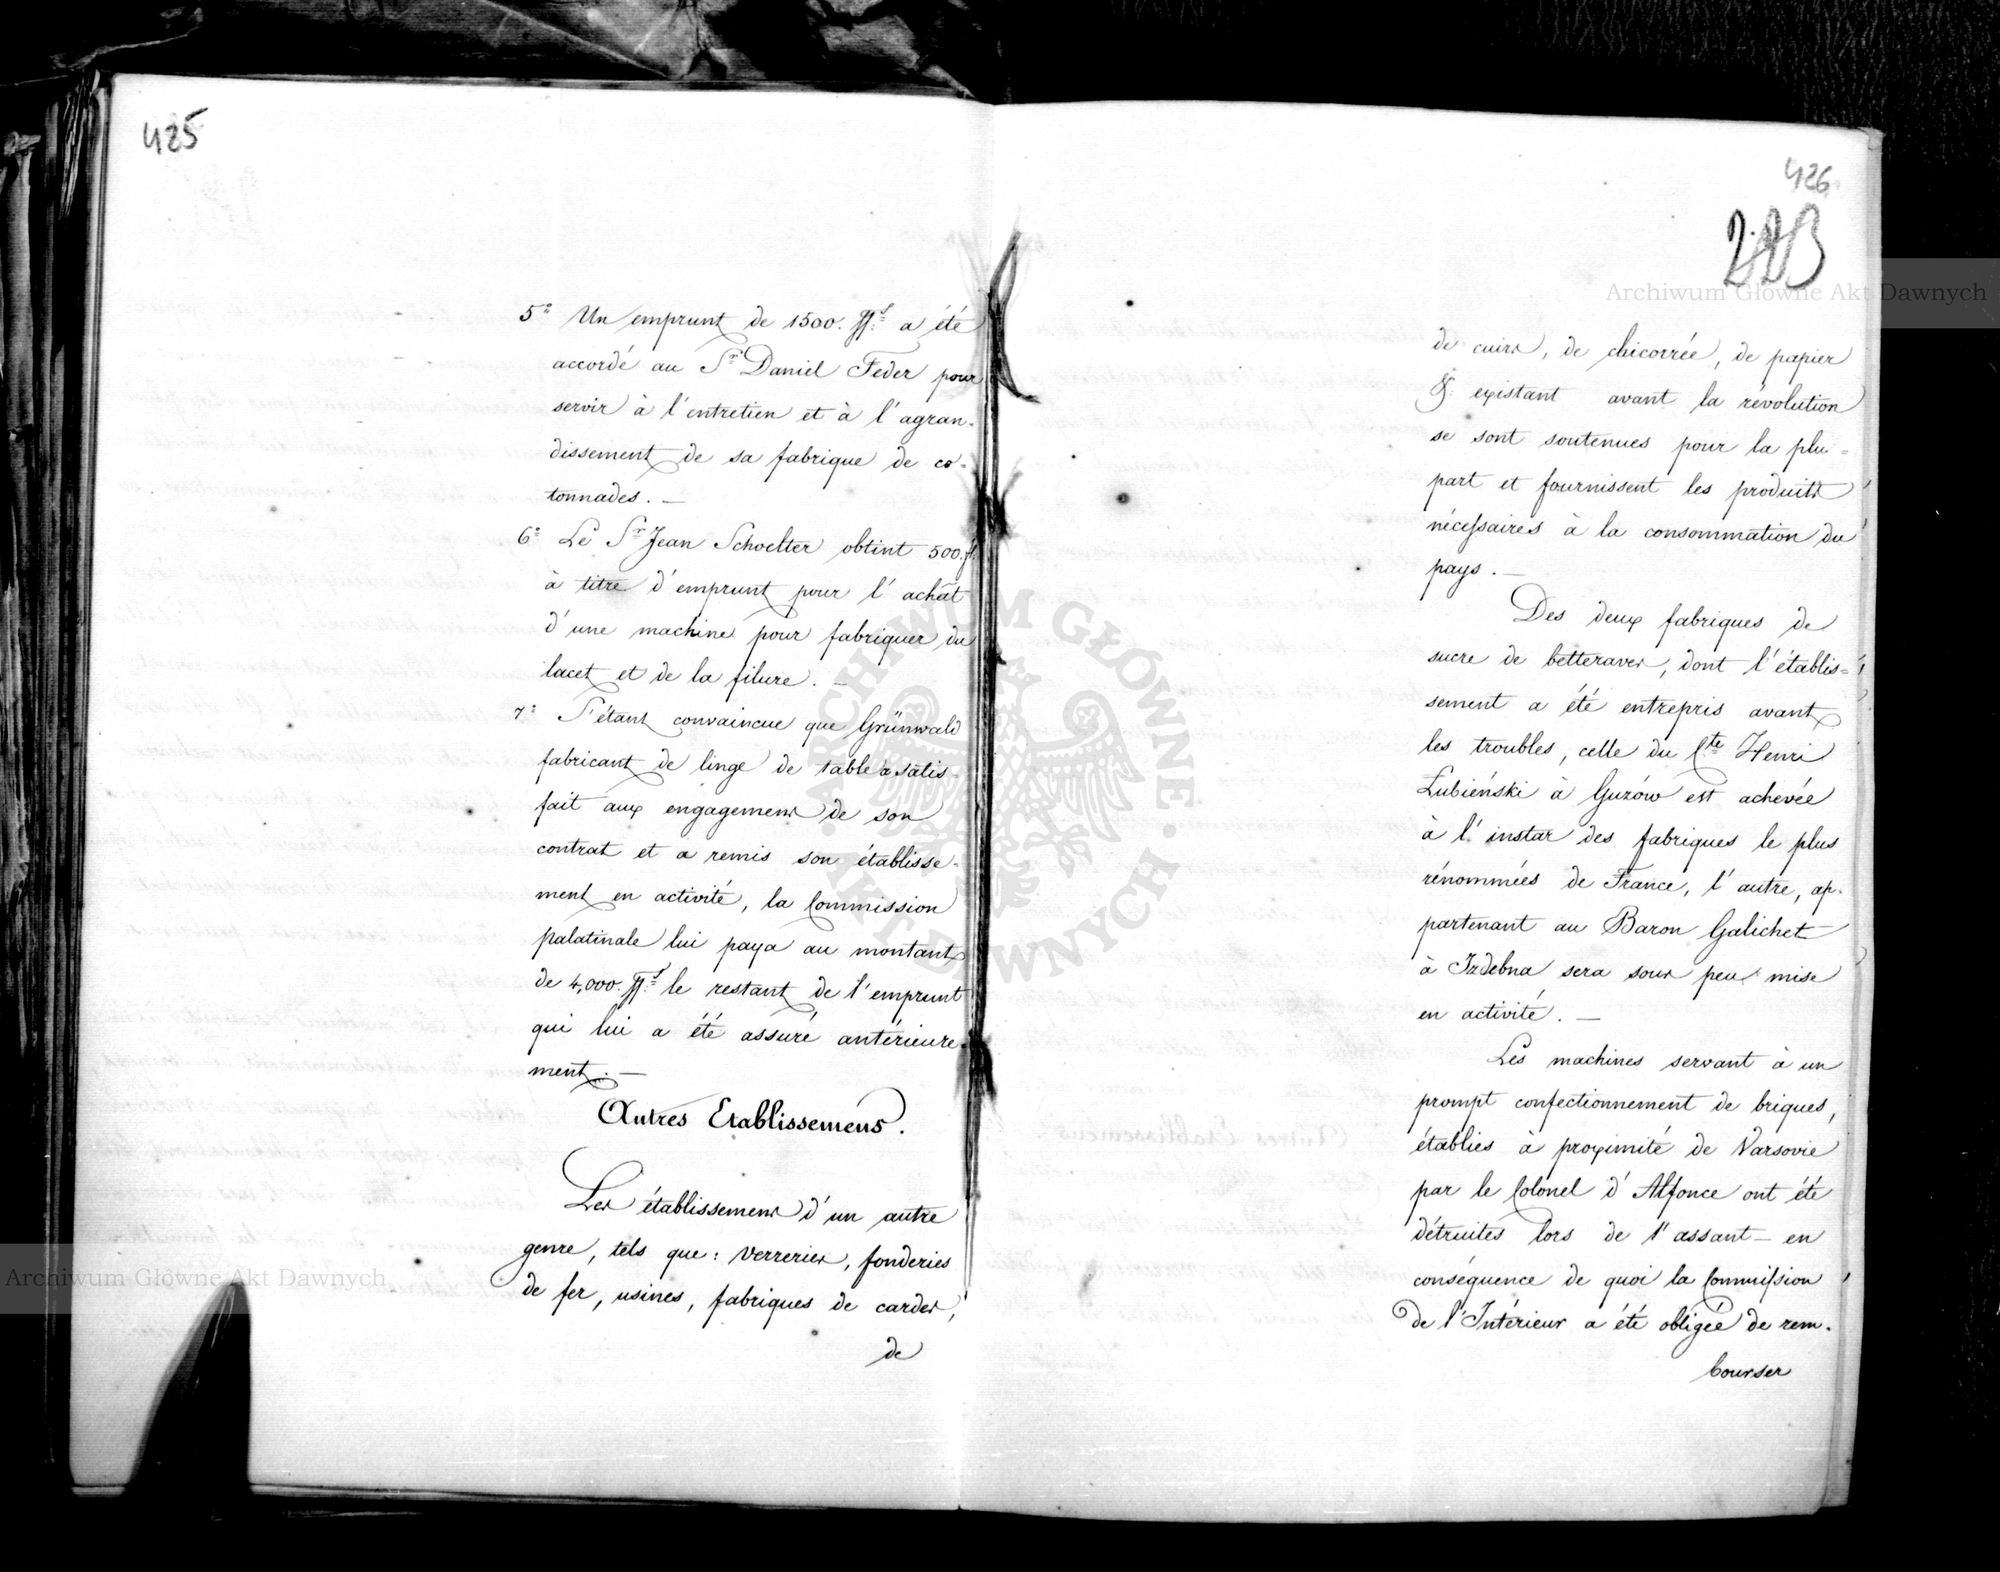 425
5° Un emprunt de 1500. ff.s a été
accordé au Sr Daniel Feder pour
servir à l'entretien et à l'agran-
dissement de sa fabrique de co-
tonnades. —
6° Le Sr Jean Schoelter obtint 500.f.
à titre d'emprunt pour l'achât
d'une machine pour fabriquer du
lacet et de la filure. —
7° S'étant convaincue que Grünwald
fabricant de linge de table a satis-
fait aux engagemens de son
contrat et a remis son établisse-
ment en activité, la Commission
palatinale lui paya au montant
de 4,000. ff.s le restant de l'emprunt
qui lui a été assuré antérieure-
ment. —
Autres Etablissemens.
Les établissemens d'un autre
genre, tels que: verreries, fonderies
de fer, usines, fabriques de cardes,
de
426
de cuirs, de chicorrée, de papier
&. existant avant la révolution
se sont soutenues pour la plu-
part et fournissent les produits
nécessaires à la consommation du
pays. —
Des deux fabriques de
sucre de betteraves, dont l'établis-
sement a été entrepris avant
les troubles, celle du Cte Henri
Łubiénski à Guzów est achevée
à l'instar des fabriques le plus
rénommées de France, l'autre, ap-
partenant au Baron Galichet
à Izdebna sera sous peu mise
en activité. —
Les machines servant à un
prompt confectionnement de briques,
établies à proximité de Varsovie
par le Colonel d'Alfonce ont été
détruites lors de l'assant — en
conséquence de quoi la Commission
de l'Intérieur a été obligée de rem-
bourser
Archiwum Główne Akt Dawnych
Archiwum Główne Akt Dawnych
ARCHIWUM GŁÓWNE · AKT DAWNYCH ·